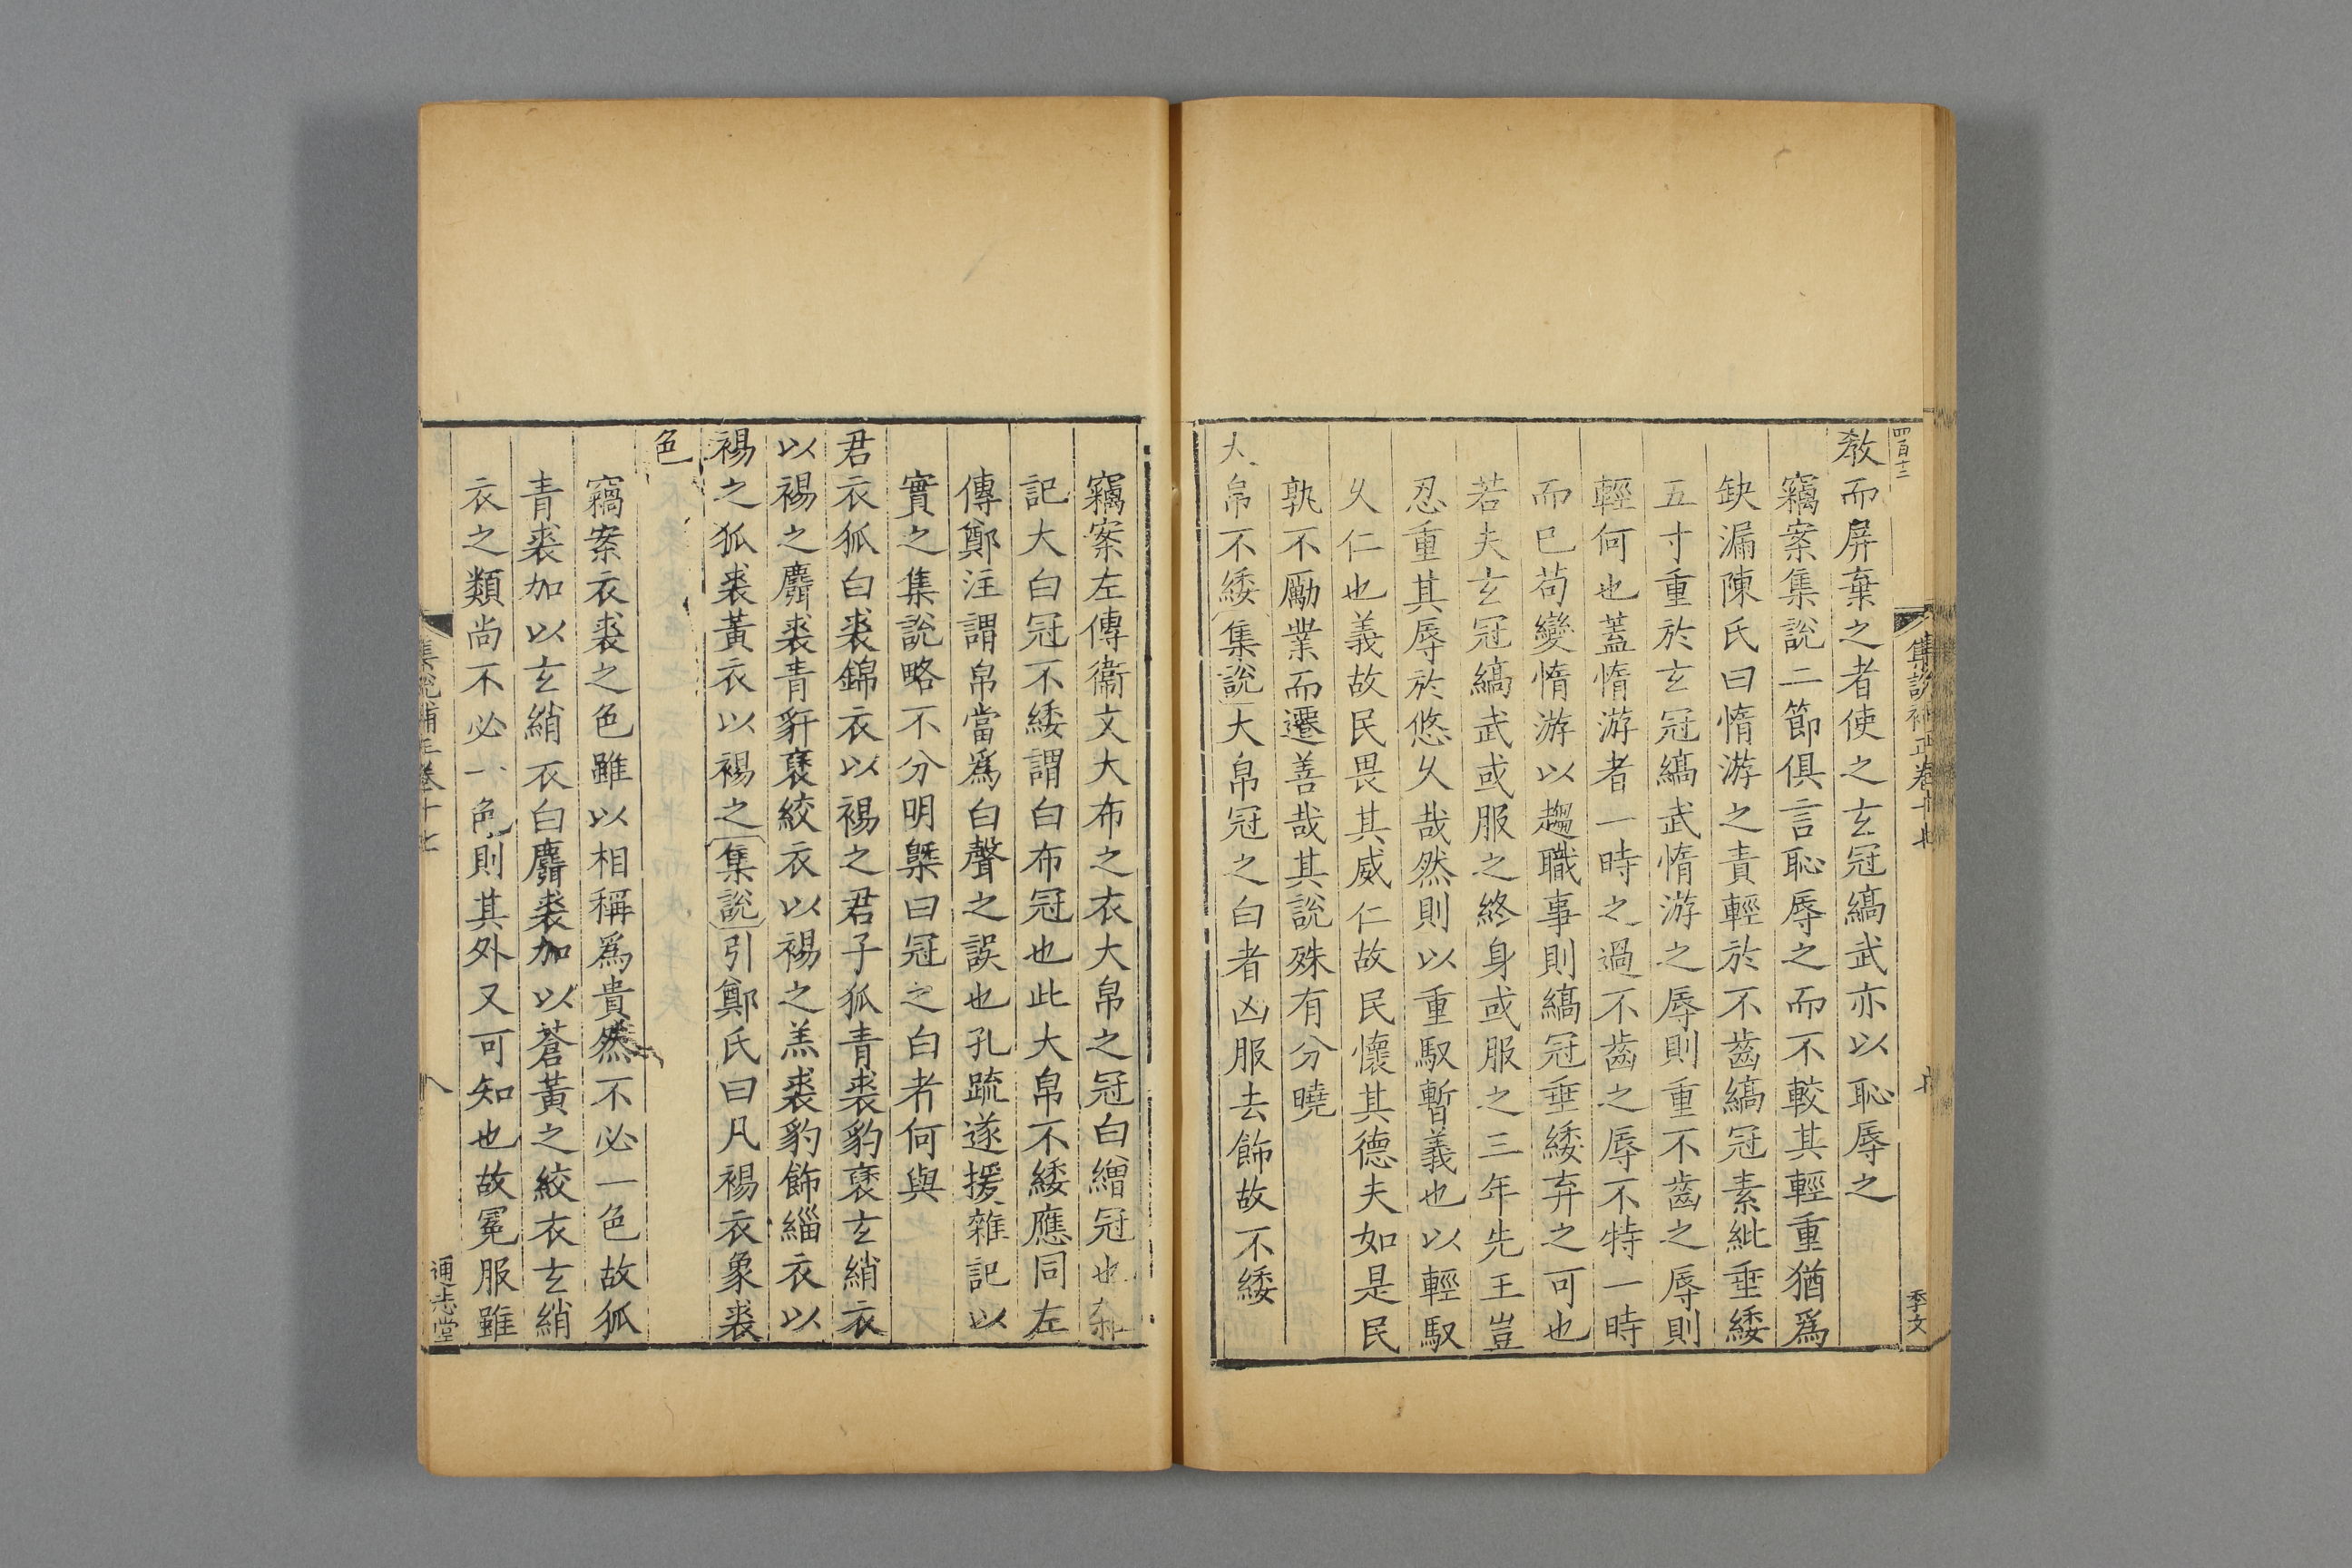 四百十二
教而屏棄之者使之玄冠縞武亦以恥辱之
竊案集說二節俱言恥辱之而不較其輕重猶爲
缺漏陳氏曰惰游之責輕於不齒縞冠素紕垂緌
五寸重於玄冠縞武惰游之辱則重不齒之辱則
輕何也蓋惰游者一時之過不齒之辱不特一時
而已苟變惰游以趨職事則縞冠垂緌弃之可也
若夫玄冠縞武或服之終身或服之三年先王豈
忍重其辱於悠久哉然則以重馭暫義也以輕馭
久仁也義故民畏其威仁故民懷其德夫如是民
孰不勵業而遷善哉其說殊有分曉
大帛不緌集說大帛冠之白者凶服去飾故不緌
集說補正卷十七
七
季文
竊案左傳衞文大布之衣大帛之冠白繒冠也雜
記大白冠不緌謂白布冠也此大帛不緌應同左
傳鄭注謂帛當爲白聲之誤也孔疏遂援雜記以
實之集說略不分明槩曰冠之白者何與
君衣狐白裘錦衣以裼之君子狐青裘豹褎玄綃衣
以裼之麛裘青豻褎絞衣以裼之羔裘豹飾緇衣以
裼之狐裘黃衣以裼之集說引鄭氏曰凡裼衣象裘
色
竊案衣裘之色雖以相稱爲貴然不必一色故狐
青裘加以玄綃衣白麛裘加以蒼黃之絞衣玄綃
衣之類尚不必一色則其外又可知也故冕服雖
集說補正卷十七
八
通志堂